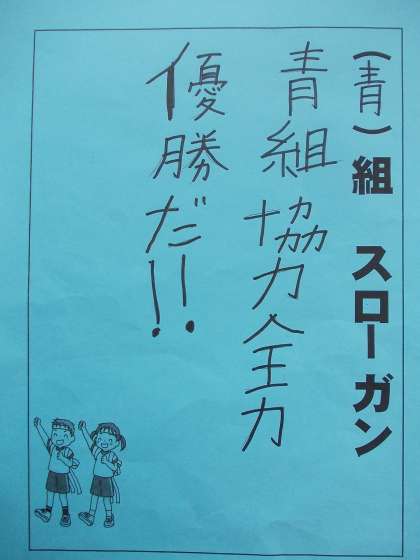 (青)組 スローガン
青組協力全力
優勝だ!!